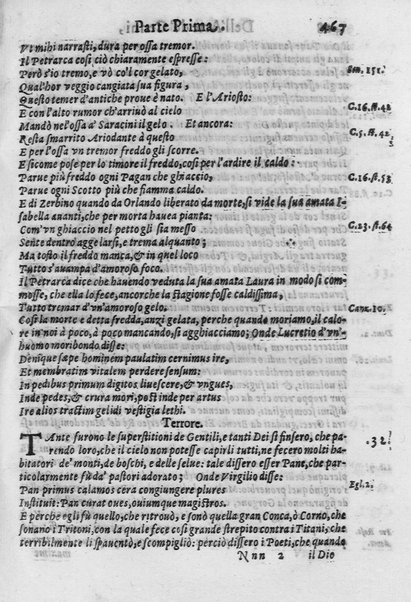 Parte Prima. 467
Vt mihi narrasti, dura per ossa tremor.
Il Petrarca così ciò chiaramente espresse:
Però s'io tremo, e vò co'l cor gelato, Son. 151.
Qual'hor veggio cangiata sua figura,
Questo temer d'antiche proue è nato. E l'Ariosto:
E con l'alto rumor ch'arriuò al cielo C.16. st. 42
Mandò nel'ossa a' Saracini il gelo. Et ancora:
Resta smarrito Ariodante à questo C.5. st. 42
E per l'ossa v'n tremor freddo gli scorre. 5
E si come pose per lo timore il freddo, così per l'ardire il caldo:
Parue più freddo ogni Pagan che ghiaccio, C.16. st. 53
Parue ogni Scotto più che fiamma caldo.
E di Zerbino quando da Orlando liberato da morte, si vide la sua amata I-
sabella auanti, che per morta hauea pianta:
Com'vn ghiaccio nel petto gli sia messo C. 23. st. 64
Sente dentro aggelarsi, e trema alquanto;
Ma tosto il freddo manca, & in quel loco
Tutto s'auampa d'amoroso foco.
Il Petrarca dice che hauendo veduta la sua amata Laura in modo si com-
mosse, che ella lo fece, ancorche la stagione fosse caldissima,
Tutto tremar d'vn'amoroso gelo. Canz. 10.
Così la morte è detta fredda, anzi gelata, perche quando moriamo, il calo-
re in noi à poco, à poco mancando, si agghiacciamo; Onde Lucretio d'vn'
huomo moribondo disse:
Denique sæpe hominem paulatim cernimus ire,
Et membratim vitalem perdere sensum:
In pedibus primum digitos liuescere, & vngues,
Inde pedes, & crura mori, post inde per artus
Ire alios tractim gelidi vestigia lethi.
Terrore.
TAnte furono le superstitioni de Gentili, e tanti Dei si finsero, che pa- 32.
rendo loro, che il cielo non potesse capirli tutti, ne fecero molti ha-
bitatori de' monti, de boschi, e delle selue: tale dissero esser Pane, che par-
ticolarmente fù da' pastori adorato; Onde Virgilio disse:
Pan primus calamos cera coniungere plures Egl. 2.
Instituit: Pan curat oues, ouiumque magistros.
E perche egli fù quello, che ritrouò, e sonò quella gran Conca, ò Corno, che
sonano i Tritoni, con la quale fece così grande strepito contra i Titani, che
terribilmente li spauentò, e scompigliò: perciò dissero i Poeti, che quando
Nnn 2 il Dio